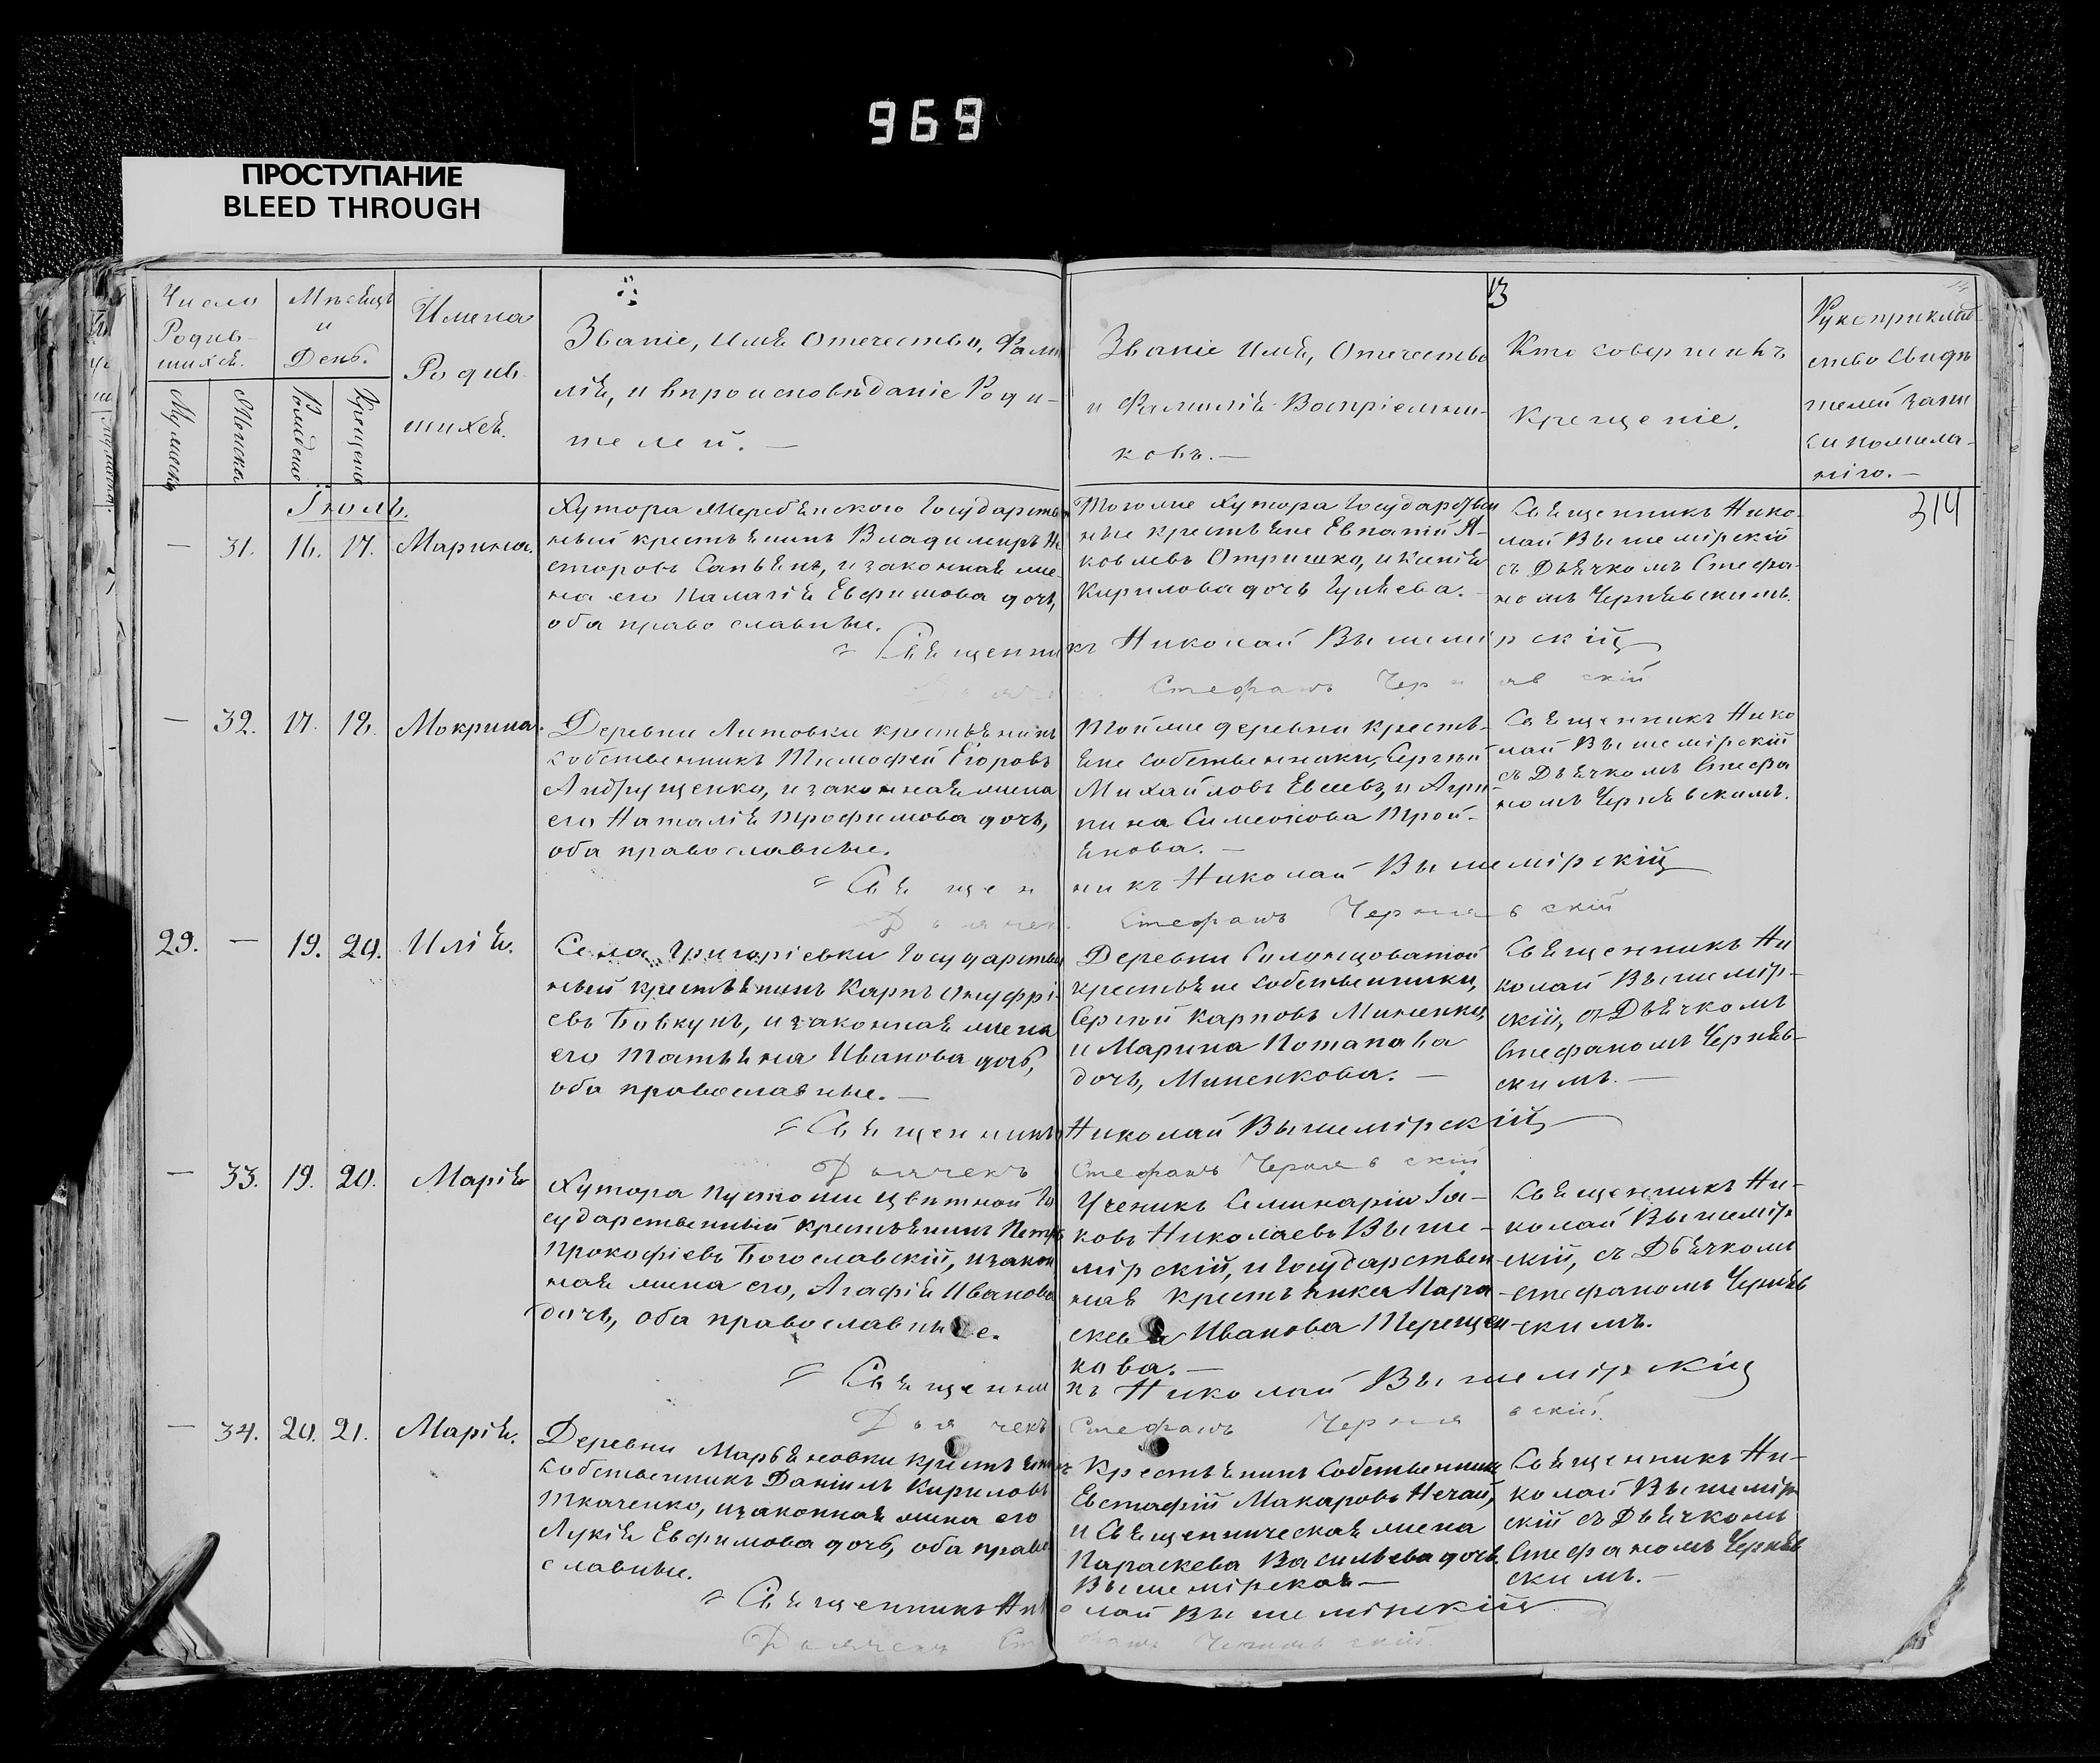 969
ПРОСТУПАНИЕ
BLEED THROUGH
13
Число
Родив-
шихся.
Мѣсяцъ
и
День.
Имена
Родив
шихся.
Званіе, имя Отечество, Фами
лія, и вѣроисповѣданіе Роди-
телей. —
Званіе Имя, Отечество
и Фамилія Воспріемни-
ковъ. —
Кто совершилъ
Крещеніе.
Рукоприклад-
ство свидѣ
телей запи
си по жела-
нію. —
Мужеска
Женска
Рожденіе
Крещеніе
314
Іюль.
— 31. 16. 17. Марина.
Хутора Государствен
ный крестьянинъ Владимиръ
и законная же-
на его Палагія Евфимова дочь,
оба православные.
Тогоже Хутора Государствен
ные крестьяне Евпатій Я-
ковлевъ Отришко, и Ксенія
Кирилова дочь Гуляева. —
Священникъ Нико-
лай Вышемірскій
съ Дьячкомъ Стефа-
номъ Чернявскимъ.
Священникъ Николай Вышемірскій
Стефанъ Чернявскій
— 32. 17. 18. Макрина.
Деревни Литовки крестьянинъ
собственникъ Тимофей Егоровъ
Андрущенко, и законная жена
его Наталія Трофимова дочь,
оба православные.
Тойже деревни крестья-
яне собственники, Сергѣй
Михайловъ Евсевъ, и Агри-
пина Симеонова Трой-
янова. —
Священникъ Нико
лай Вышемірскій
съ Дьячкомъ Стефа
номъ Чернявскимъ.
Священникъ Николай Вышемірскій
Дьячекъ Стефанъ Чернявскій
29. — 19. 20. Илія.
Села Григоріевки Государствен
ный крестьянинъ Карпъ Онуфрі-
евъ Бовкунъ, и законная жена
его Татьяна Иванова дочь,
оба православные. —
Деревни
крестьяне собственники,
Сергѣй Карповъ Миненко,
и Марина Потапова
дочь, Миненкова. —
Священникъ Ни
колай Вышемір-
скій, съ Дьячкомъ
Стефаномъ Чернявъ-
скимъ. —
Священникъ Николай Вышемірскій
Дьячекъ Стефанъ Чернявскій
— 33. 19. 20. Марія
Хутора Пустоши Цвѣтной Го
сударственный крестьянинъ Петръ
Прокофіевъ Богославскій, и закон
ная жена его, Агафія Иванова
дочь, оба православные.
Ученикъ Семинаріи Іа-
ковъ Николаевъ Выше-
мірскій, и Государствен
ная крестьянка Пара-
скева Иванова Терещен-
кова. —
Священникъ Ни-
колай Вышемір
скій, съ Дьячкомъ
Стефаномъ Черняв
скимъ.
Священникъ Николай Вышемірскій
Дьячекъ Стефанъ Чернявскій.
— 34. 20. 21. Марія.
Деревни Марьяновки крестьянинъ
собственникъ Даніилъ Кириловъ
Ткаченко, и законная жена его
Лукія Евфимова дочь, оба право
славные.
Крестьянинъ Собственникъ
Евстафій Макаровъ Нечай,
и Священническая жена
Параскева Васильева дочь
Вышемірская —
Священникъ Ни-
колай Вышемір
скій съ Дьячкомъ
Стефаномъ Черняв
скимъ. —
Священникъ Николай Вышемірскій
Дьячекъ Стефанъ Чернявскій.